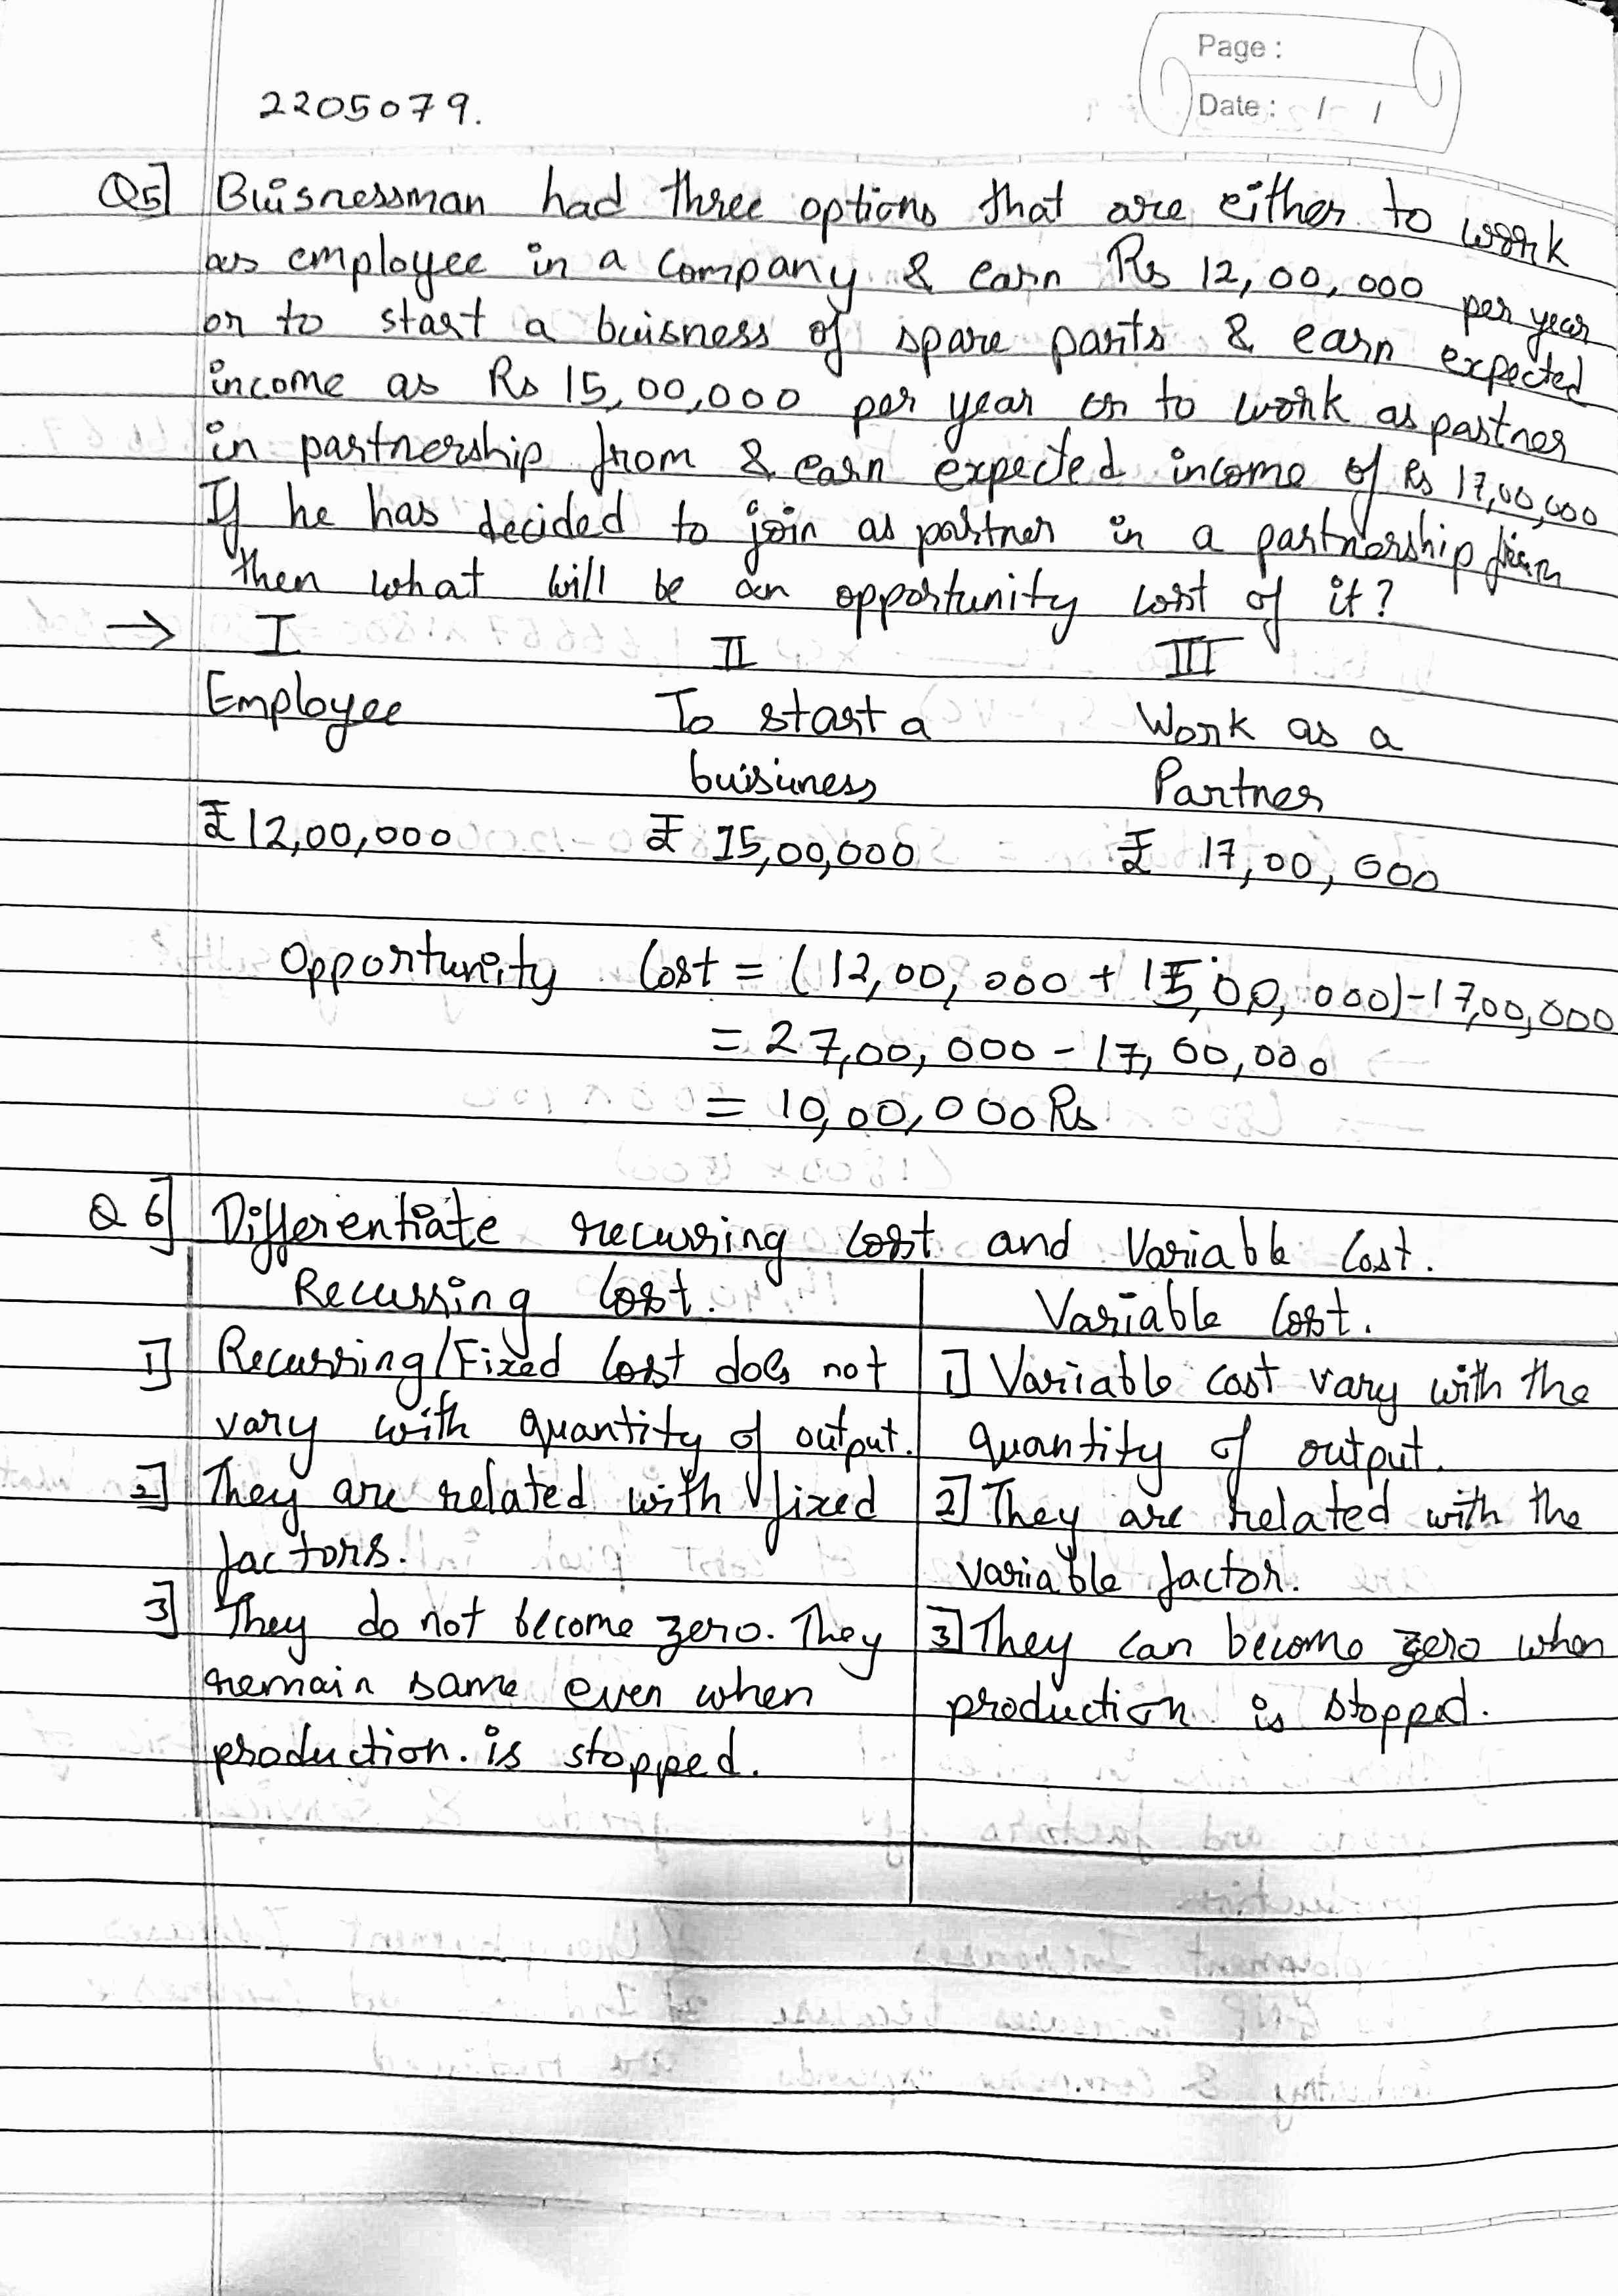 Page :
Date : / /
2205079.
Q5] Buisnessman had three options that are either to work
as employee in a company & earn Rs 12,00,000 per year
or to start a buisness of spare parts & earn expected
income as Rs 15,00,000 per year or to work as partner
in partnership from & earn expected income of Rs 17,00,000
If he has decided to join as partner in a partnership firm
then what will be an opportunity cost of it?
→ I II III
Employee To start a Work as a
buisiness Partner
₹ 12,00,000 ₹ 15,00,000 ₹ 17,00,000
Opportunity Cost = (12,00,000 + 15,00,000) - 17,00,000
= 27,00,000 - 17,00,000
= 10,00,000 Rs
Q 6] Differentiate recurring cost and Variable Cost.
Recurring Cost. Variable Cost.
1] Recurring/Fixed Cost does not 1] Variable cost vary with the
vary with quantity of output. quantity of output.
2] They are related with fixed 2] They are related with the
factors. variable factor.
3] They do not become zero. They 3] They can become zero when
remain same even when production is stopped.
production. is stopped.